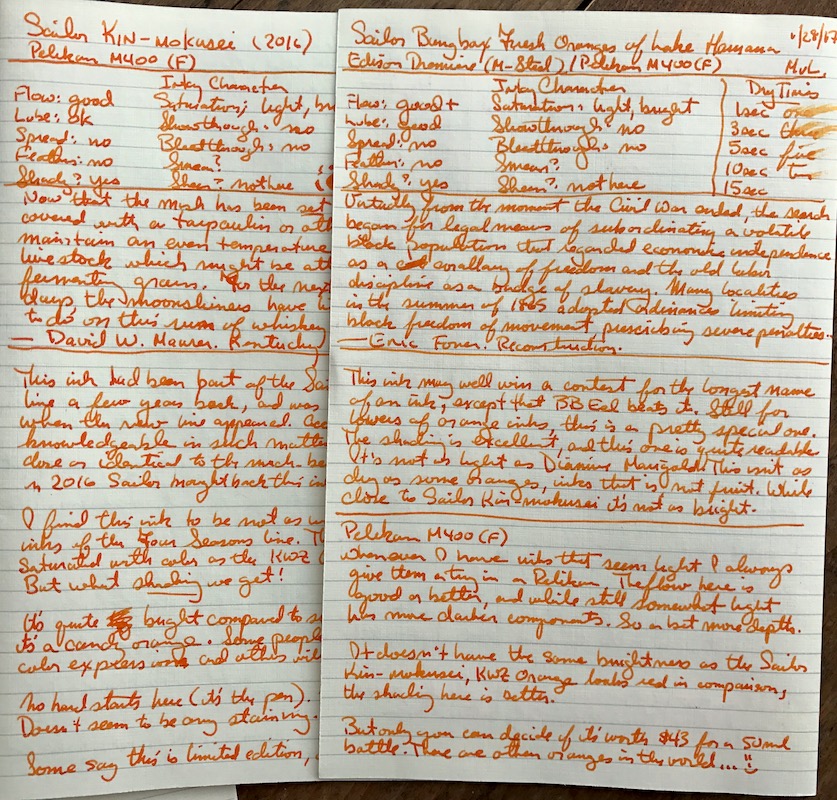 Sailor KIN-mokusei (2016)
Pelikan M400 (F)
Inky Character
Flow: good Saturation: light, br
Lube: ok Showthrough: no
Spread: no Bleedthrough: no
Feather: no Smear?
Shady? yes Sheen? not here
Now that the mash has been set
covered with a tarpaulin or oth
maintain an even temperature
livestock which might be att
fermenting grains. For the next
days the moonshiners have
to do on this run of whiskey
— David W. Maurer. Kentucky
This ink had been part of the Sai
line a few years back, and was
when the new line appeared. Acc
knowledgeable in such matter
close or identical to the much-be
n 2016 Sailor brought back this in
I find this ink to be not as w
inks of the Four Seasons line. T
Saturated with color as the KWZ
But what shading we get!
It's quite bright compared to s
it's a candy orange. Some people
color express and others wil
No hard starts here (it's the pen).
Doesn't seem to be any staining.
Some say this is limited edition,
Sailor Bungbox Fresh Oranges of Lake Hamana 1/28/17
Edison Premiere (M-Steel), / Pelikan M400 (F) MvL
Inky Character Dry Times
Flow: good+ Saturation: light, bright 1sec one
Lube: good Showthrough: no 3sec three
Spread: no Bleedthrough: no 5sec five
Feather: no Smear? 10sec
Shady? yes Sheen? not here 15sec
Virtually from the moment the Civil War ended, the search
began for legal means of subordinating a volatile
black population that regarded economic independence
as a corollary of freedom and the old labor
discipline as a badge of slavery. Many localities
in the summer of 1865 adopted ordinances limiting
black freedom of movement, prescribing severe penalties..
— Eric Foner. Reconstruction.
This ink may well win a contest for the longest name
of an ink, except that BB Eel beats it. Still for
lovers of orange inks, this is a pretty special one.
The shading is excellent, and this one is quite readable
It's not as light as Diamine Marigold. This isn't as
dry as some oranges, inks that is not fruit. While
close to Sailor Kin-mokusei it's not as bright.
Pelikan M400 (F)
Whenever I have inks that seem light I always
give them a try in a Pelikan. The flow here is
good or better, and while still somewhat light
has more darker components. So a bit more depth.
It doesn't have the same brightness as the Sailor
Kin-mokusei, KWZ Orange looks red in comparison,
the shading here is better.
But only you can decide if it's worth $43 for a 50 ml
bottle. There are other oranges in the world...